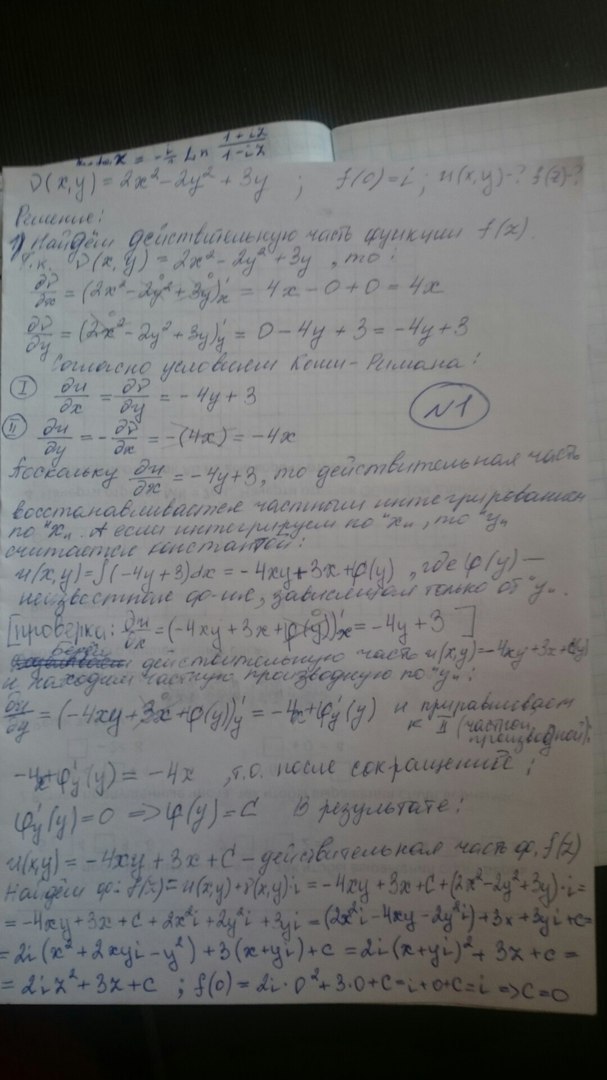 = -i/2 Ln (1+iz)/(1-iz)
ϑ(x,y)=2x²-2y²+3y ; f(0)=i ; u(x,y)-? f(z)-?
Решение:
1) Найдём действительную часть функции f(z).
Т.к. ϑ(x,y)=2x²-2y²+3y , то:
∂ϑ/∂x = (2x²-2y²+3y)'x = 4x-0+0=4x
∂ϑ/∂y = (2x²-2y²+3y)'y = 0-4y+3=-4y+3
Согласно условиям Коши-Римана:
I ∂u/∂x = ∂ϑ/∂y = -4y+3
N1
II ∂u/∂y = -∂ϑ/∂x = -(4x) = -4x
Поскольку ∂u/∂x = -4y+3, то действительная часть
восстанавливается частным интегрированием
по "x". А если интегрируем по "x", то "y"
считается константой:
u(x,y)=∫(-4y+3)dx = -4xy+3x+φ(y) , где φ(y) —
неизвестная ф-ия, зависящая только от "y".
[проверка: ∂u/∂x = (-4xy+3x+φ(y))'x = -4y+3 ]
берём действительную часть u(x,y)=-4xy+3x+φ(y)
и находим частную производную по "y":
∂u/∂y = (-4xy+3x+φ(y))'y = -4x+φ'y(y) и приравниваем
к II (частной производной):
-4x+φ'y(y) = -4x , т.о. после сокращений:
φ'y(y)=0 => φ(y)=C В результате:
u(x,y)=-4xy+3x+C - действительная часть ф. f(z)
Найдём ф: f(z)=u(x,y)+ϑ(x,y)·i = -4xy+3x+C+(2x²-2y²+3y)·i=
= -4xy+3x+C+2x²i+2y²i+3yi=(2x²i-4xy-2y²i)+3x+3yi+C=
= 2i(x²+2xyi-y²)+3(x+yi)+C = 2i(x+yi)²+3z+C=
= 2iz²+3z+C ; f(0)=2i·0²+3·0+C=i+0+C=i => C=0